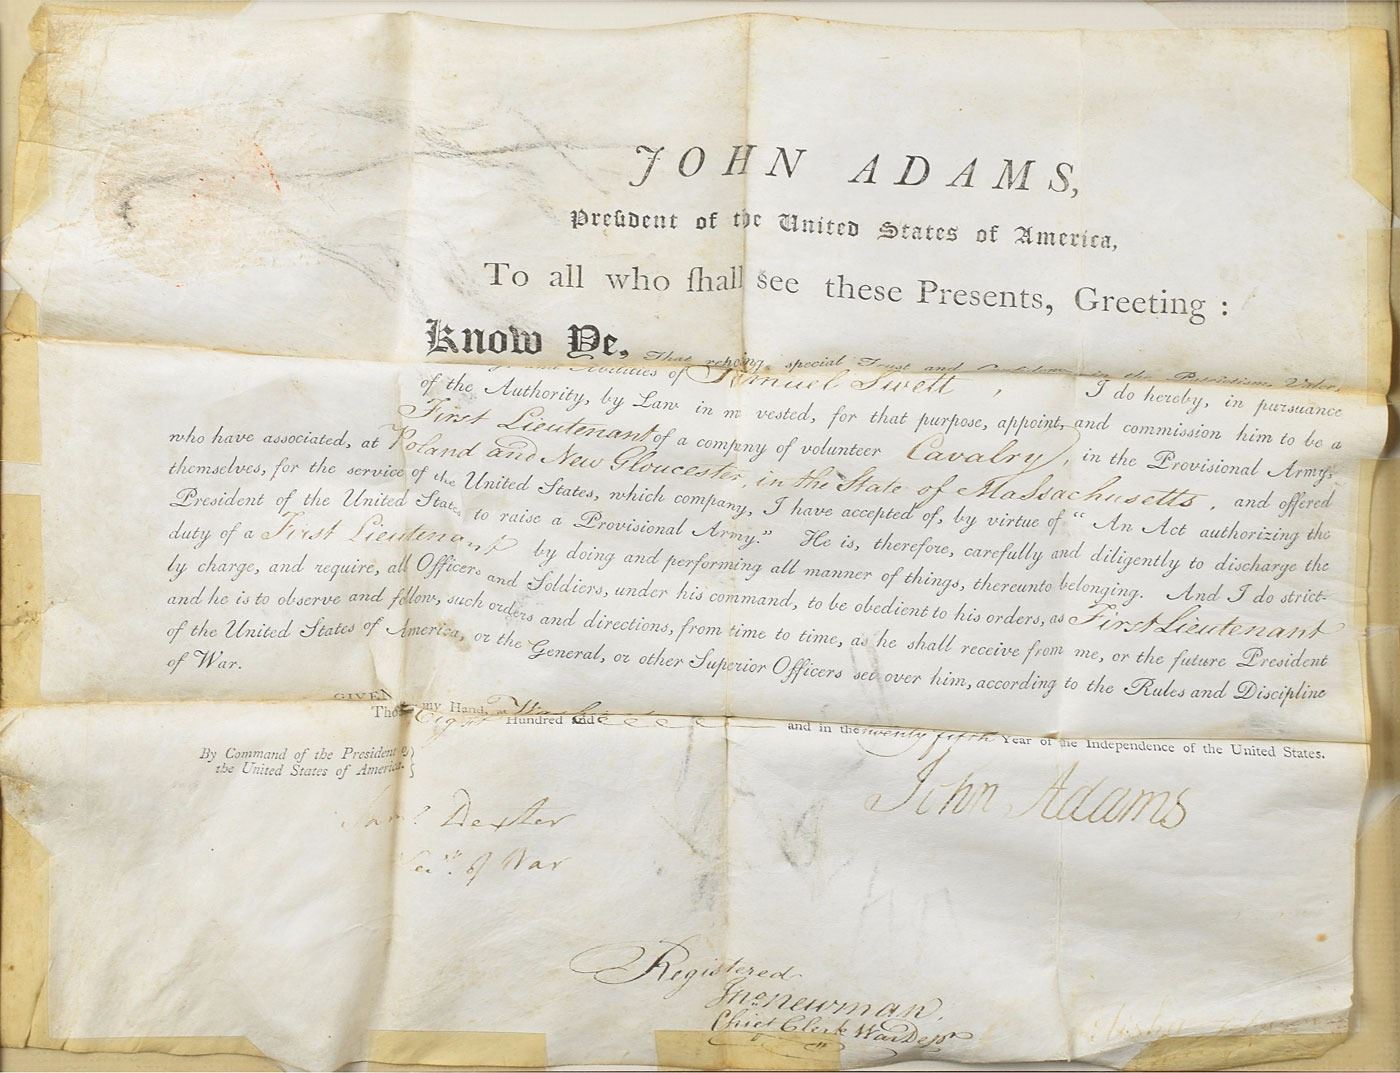 JOHN ADAMS,
Preſident of the United States of America,
To all who ſhall see these Presents, Greeting :
Know Ye, That reposing special Trust and Confidence in the Patriotism, Valor,
and Abilities of Samuel Swett , I do hereby, in pursuance
of the Authority, by Law in me vested, for that purpose, appoint, and commission him to be a
First Lieutenant of a company of volunteer Cavalry, in the Provisional Army,
who have associated, at Poland and New Gloucester, in the State of Massachusetts, and offered
themselves, for the service of the United States, which company, I have accepted of, by virtue of "An Act authorizing the
President of the United States to raise a Provisional Army." He is, therefore, carefully and diligently to discharge the
duty of a First Lieutenant by doing and performing all manner of things, thereunto belonging. And I do strict-
ly charge, and require, all Officers and Soldiers, under his command, to be obedient to his orders, as First Lieutenant
and he is to observe and follow, such orders and directions, from time to time, as he shall receive from me, or the future President
of the United States of America, or the General, or other Superior Officers set over him, according to the Rules and Discipline
of War.
GIVEN my Hand, at
Eight Hundred and and in the twenty fifth Year of the Independence of the United States.
By Command of the President of
the United States of America.
John Adams
Saml Dexter
Secy. of War
Registered
Jno Newman,
Chief Clerk War Dept